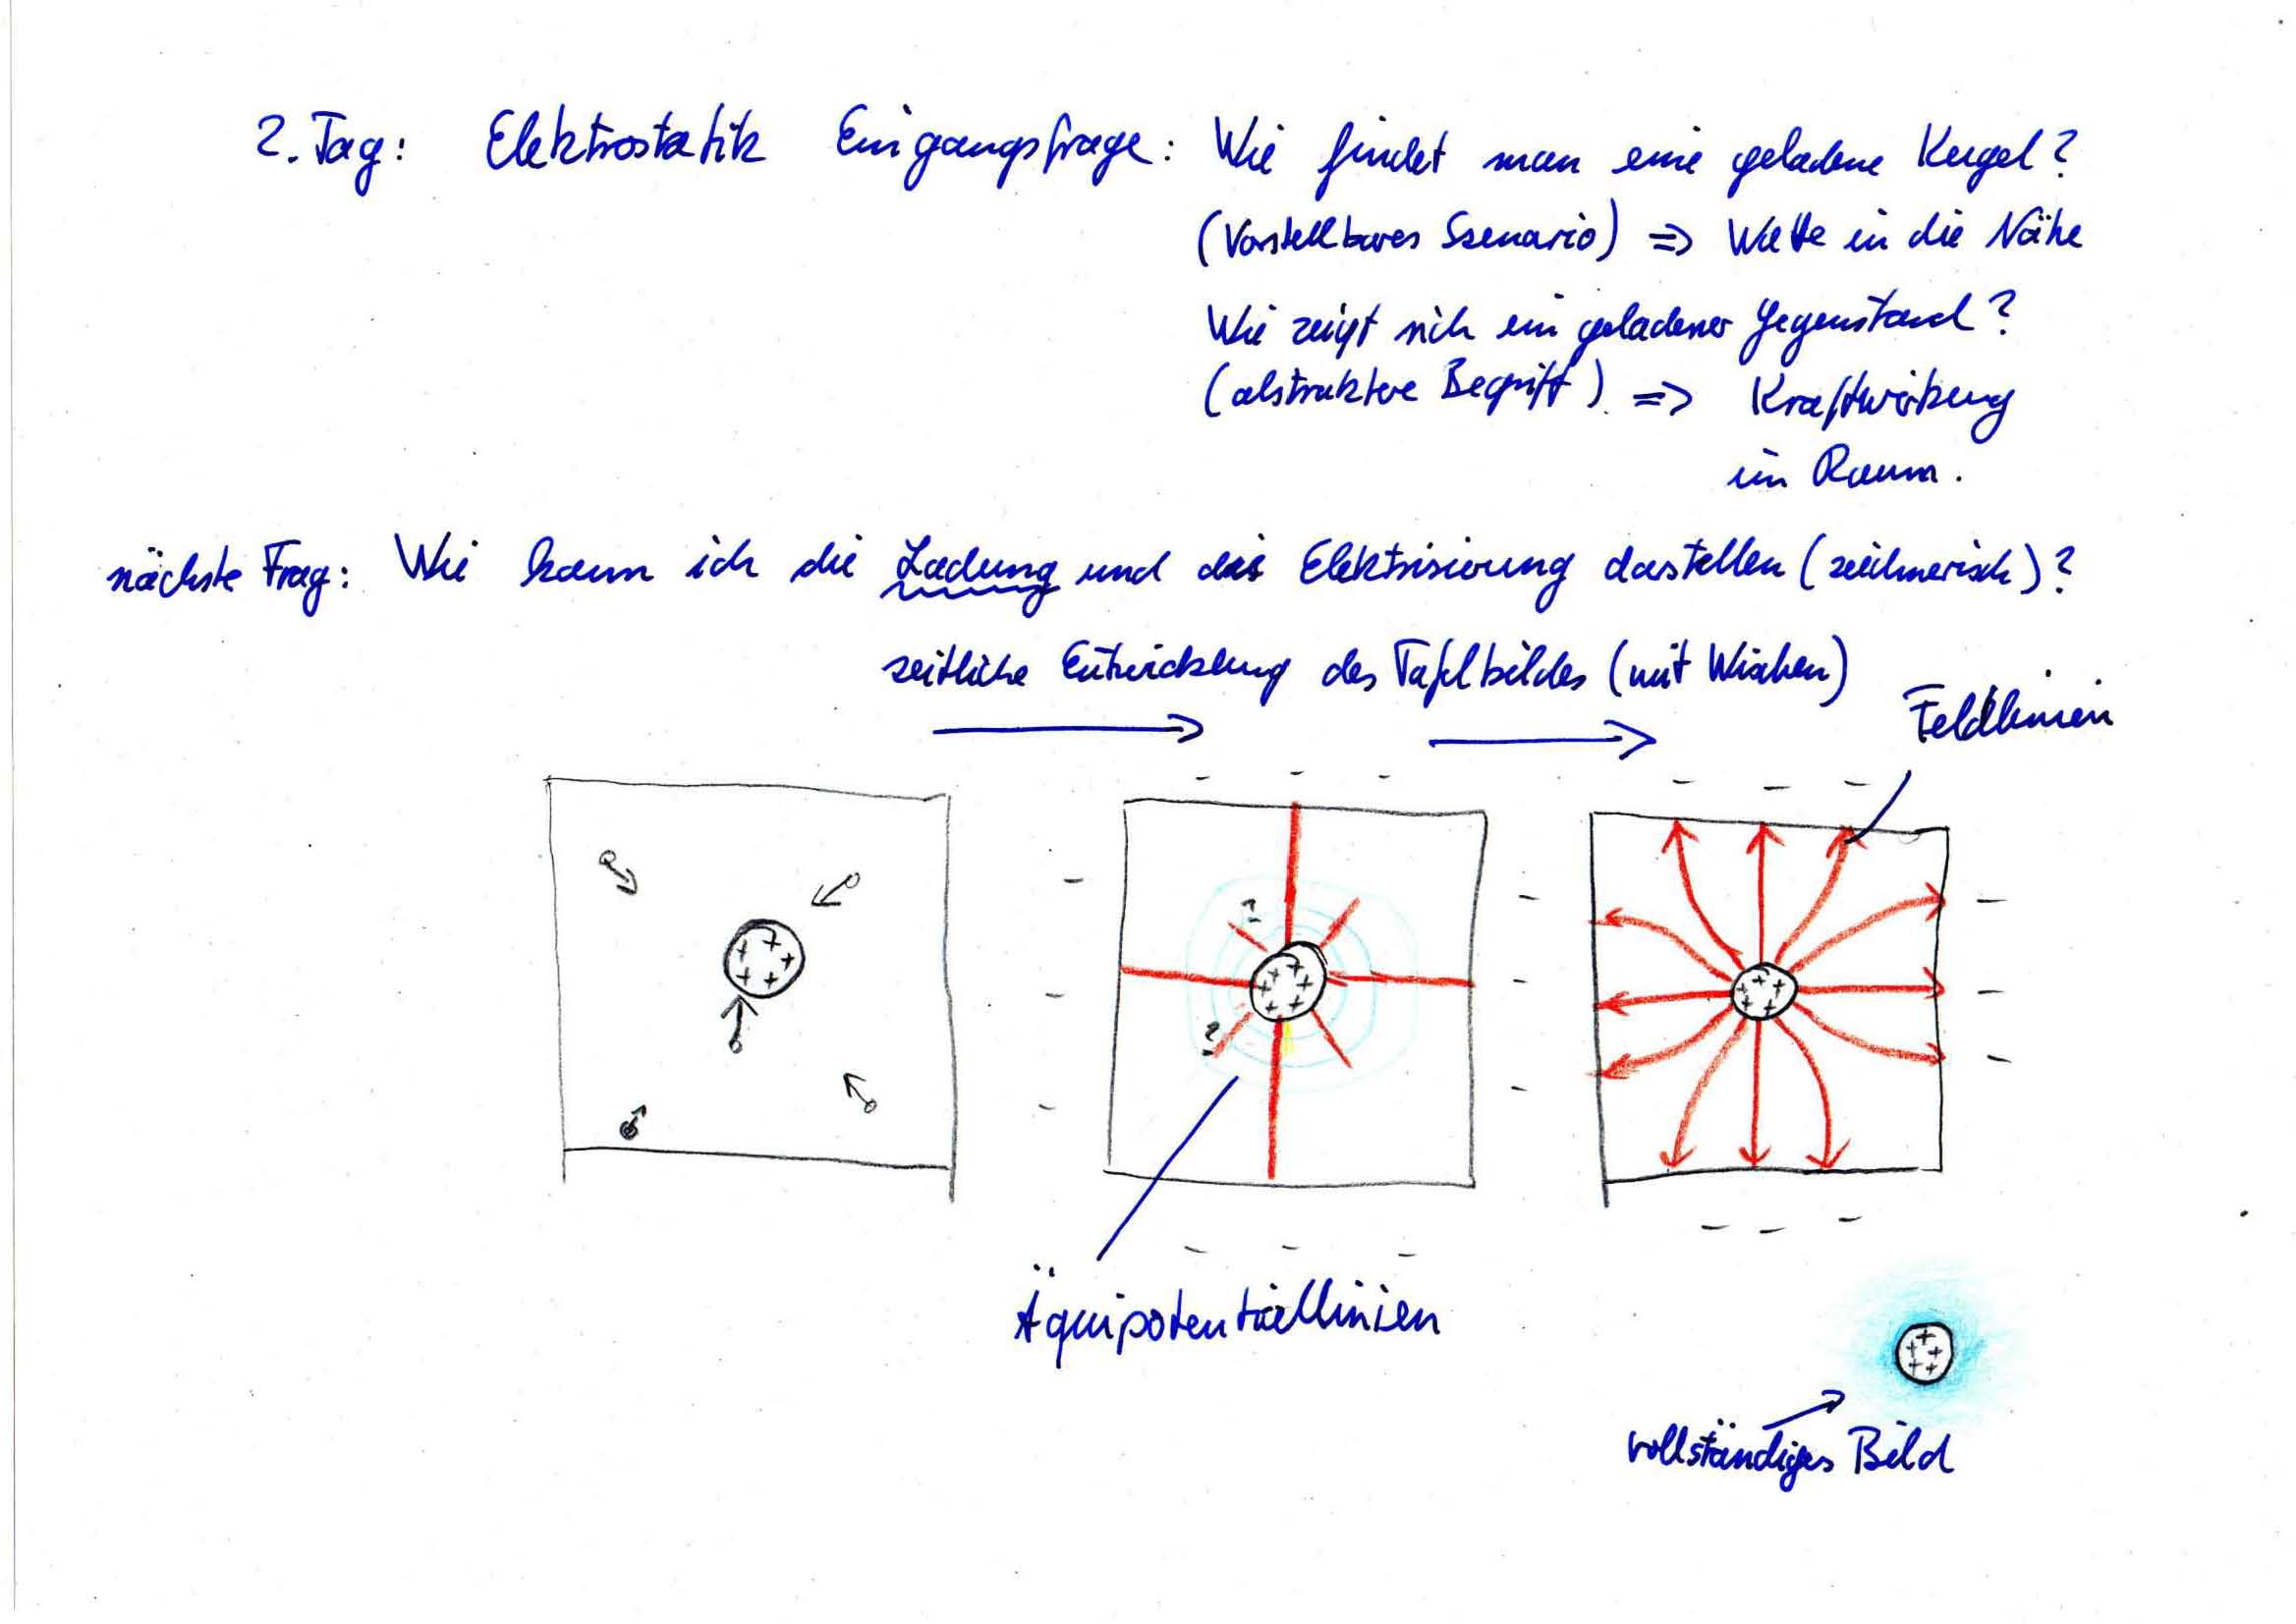 2. Tag: Elektrostatik Eingangsfrage: Wie findet man eine geladene Kugel?
(Vorstellbares Szenario) => Watte in die Nähe
Wie zeigt sich ein geladener Gegenstand?
(abstraktere Begriff) => Kraftwirkung
im Raum.
nächste Frag: Wie kann ich die Ladung und die Elektrisierung darstellen (zeichnerisch)?
zeitliche Entwicklung des Tafelbildes (mit Wischen)
Feldlinien
Äquipotentiallinien
vollständiges Bild